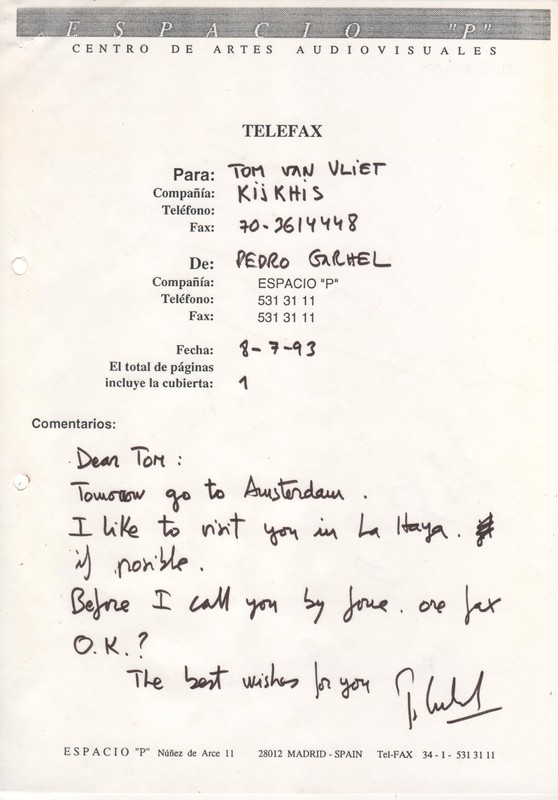 ESPACIO "P"
CENTRO DE ARTES AUDIOVISUALES
TELEFAX
Para: TOM VAN VLIET
Compañía: KIJKHIS
Teléfono:
Fax: 70-3614448
De: PEDRO GARHEL
Compañía: ESPACIO "P"
Teléfono: 531 31 11
Fax: 531 31 11
Fecha: 8-7-93
El total de páginas
incluye la cubierta: 1
Comentarios:
Dear Tom:
Tomorrow go to Amsterdam.
I like to visit you in La Haya.
if posible.
Before I call you by fone. ore fax
O.K.?
The best wishes for you
ESPACIO "P" Núñez de Arce 11 28012 MADRID - SPAIN Tel-FAX 34 - 1 - 531 31 11